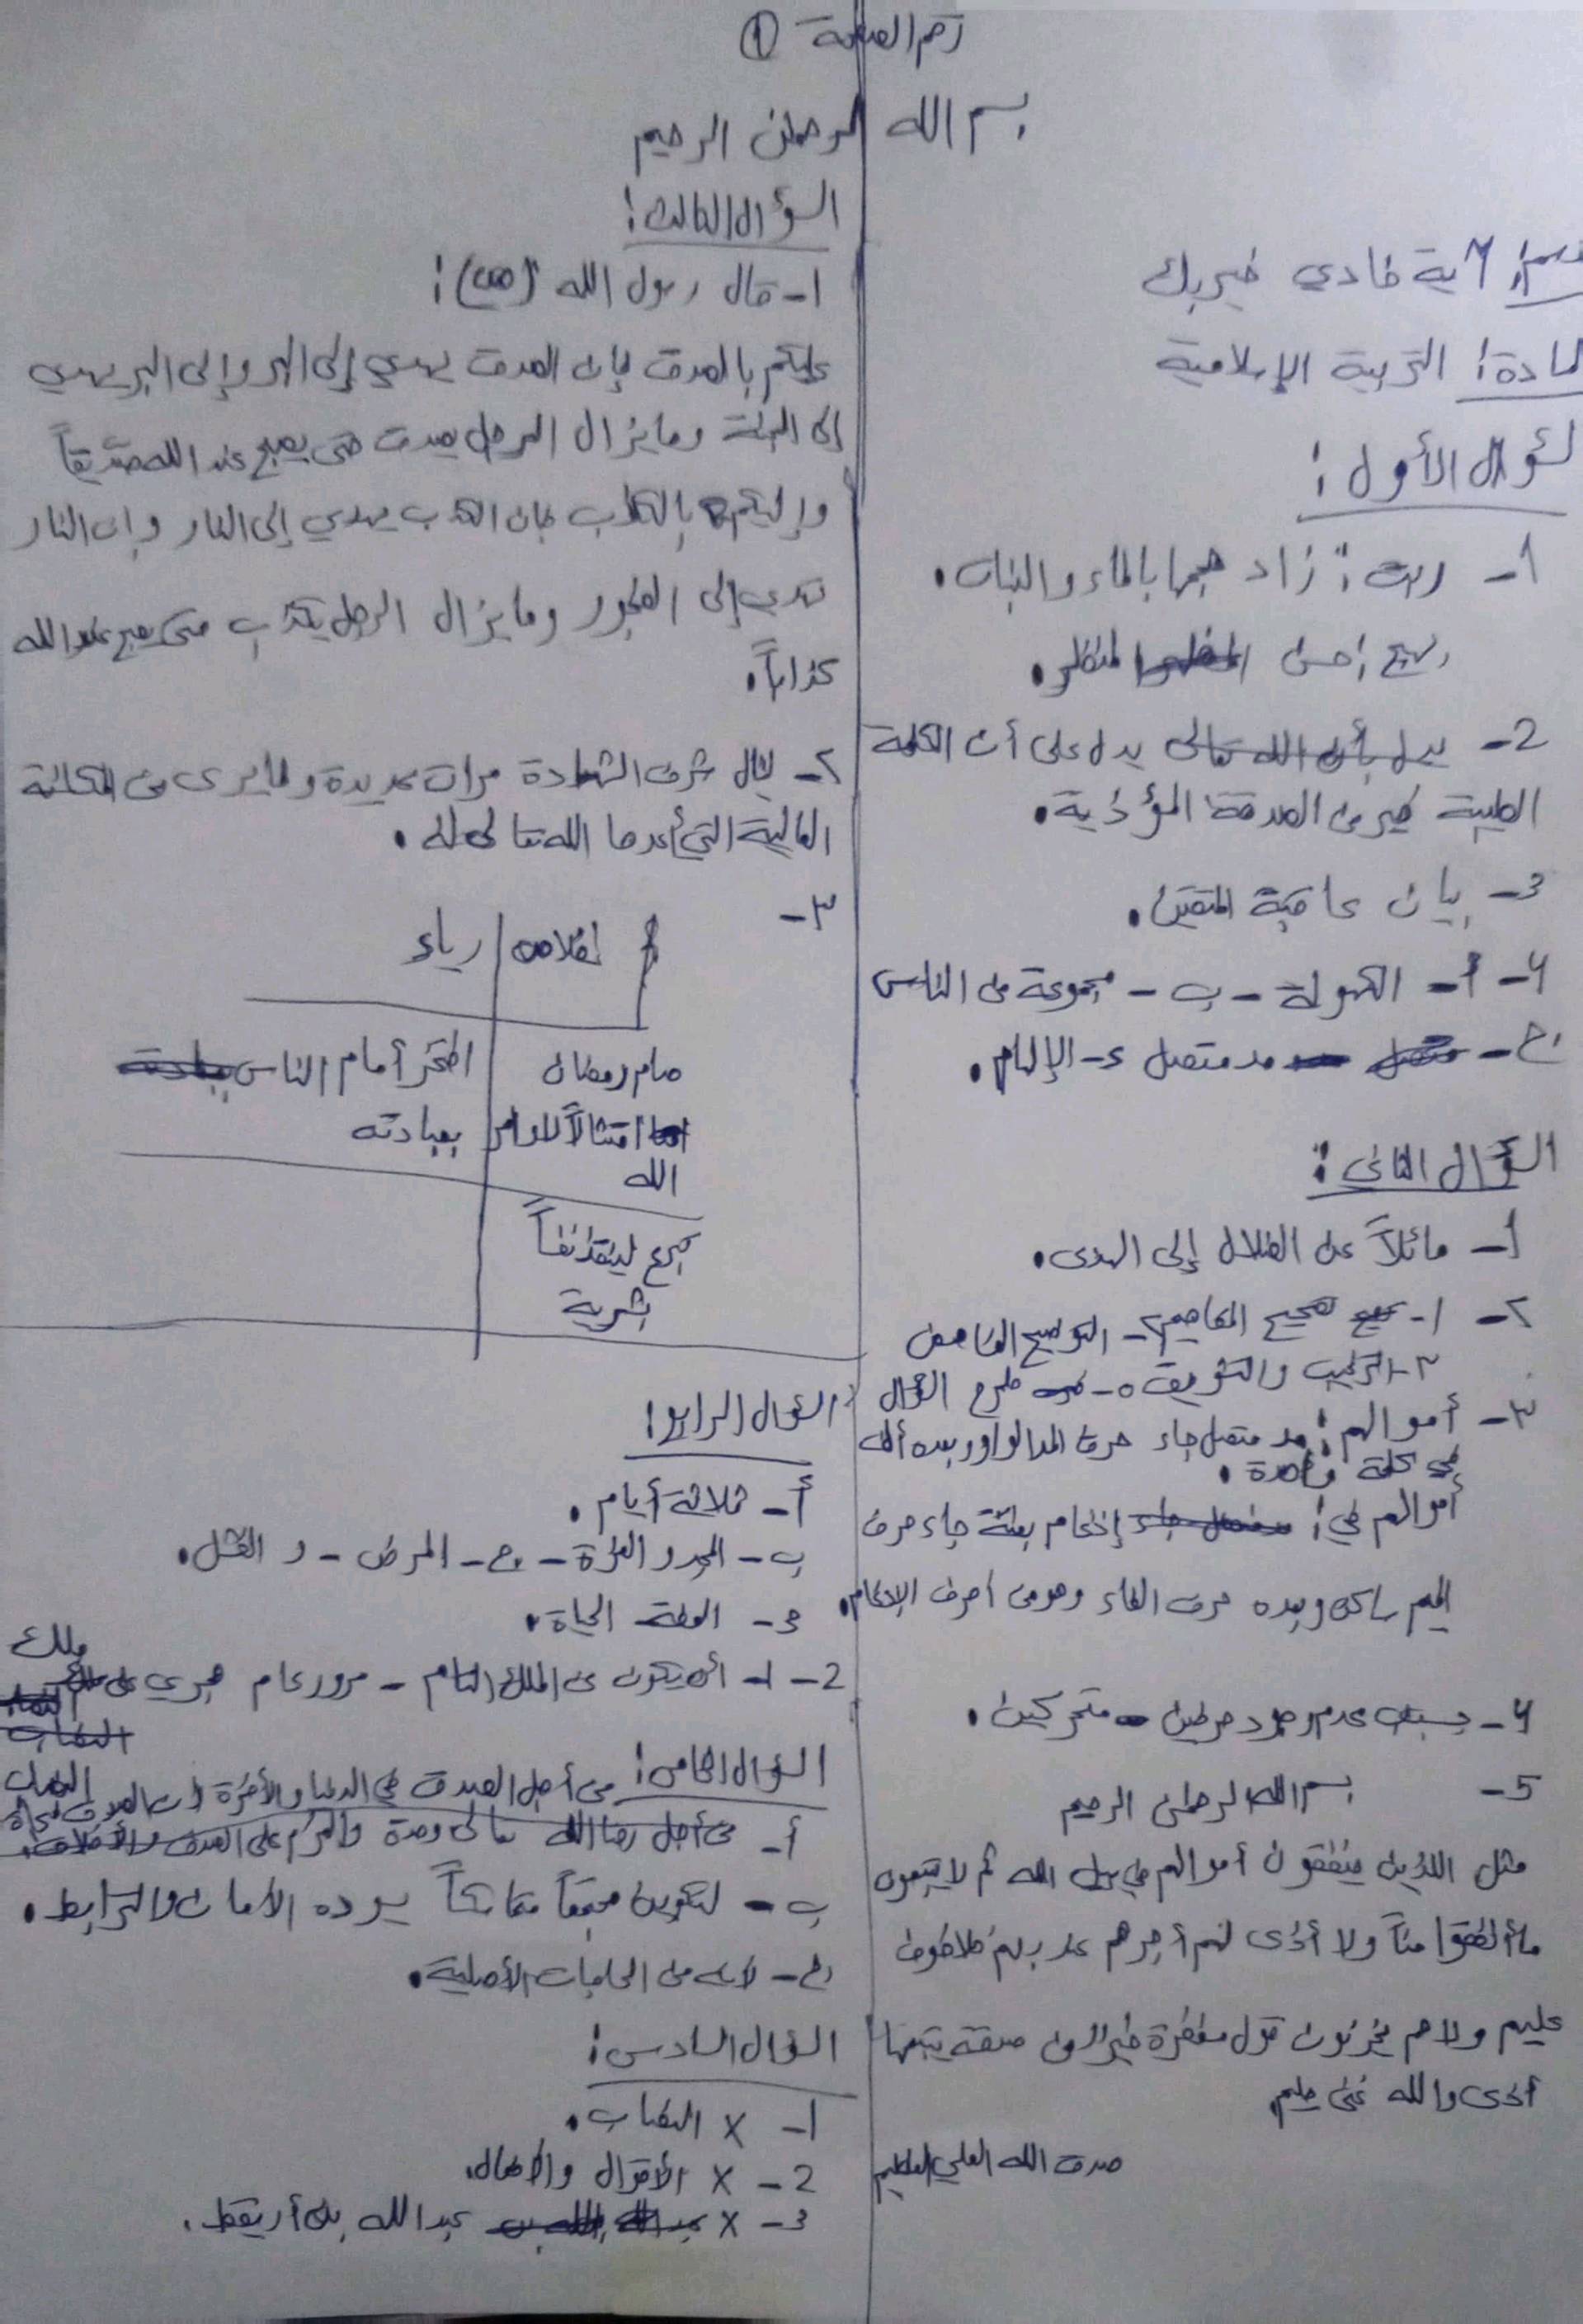 رقم الصفحة ①
بسم الله الرحمن الرحيم
آية فادي خير بك
المادة: التربية الإسلامية
السؤال الأول:
1- ربت: زاد حجمها بالماء والنبات.
بهيج: حسن المنظر.
2- يدل على أن الكلمة
الطيبة خير من الصدقة المؤذية.
3- بيان عاقبة المتقين.
4- أ- الكهولة - ب - مجموعة من الناس
ج- مد متصل د- الإلهام.
السؤال الثاني:
1- مائلاً عن الضلال إلى الهدى.
٢- ١- تصحيح المفاهيم ٢- التوضيح الغامض
٣- الترغيب والتشويق ٥- طرح السؤال
٣- أموالهم: مد متصل جاء حرف المد الواو وبعده ألف
في كلمة واحدة.
أموالهم في: إدغام بغنة جاء حرف
الميم ساكن وبعده حرف الفاء وهو من أحرف الإدغام.
4- بسبب عدم وجود حرفين متحركين.
5- بسم الله الرحمن الرحيم
مثل اللذين ينفقون أموالهم في سبيل الله ثم لا يتبعون
ما أنفقوا مناً ولا أذى لهم أجرهم عند ربهم فلا خوف
عليهم ولا هم يحزنون قول مغفرة خير من صدقة يتبعها
أذى والله غني حليم
صدق الله العلي العظيم
السؤال الثالث:
1- قال رسول الله (ص):
عليكم بالصدق فإن الصدق يهدي إلى البر وإلى البر يهدي
إلى الجنة وما يزال الرجل يصدق حتى يصبح عند الله صدّيقاً
وإليكم بالكذب فإن الكذب يهدي إلى النار وإن النار
تهدي إلى الفجور وما يزال الرجل يكذب حتى يصبح عند الله
كذاباً.
٢- لينال شرف الشهادة مرات عديدة ولما يرى من المكانة
العالية التي أعدها الله تعالى له.
٣-
إخلاص | رياء
صام رمضان | افتخر أمام الناس
امتثالاً لأوامر | بعبادته
الله
تبرع لينقذ نفساً
بشرية
السؤال الرابع:
أ- ثلاثة أيام.
ب- المجد و العزة - ج- المرض - و الفشل.
3- الحياة.
2- 1- أن يكون من الملك التام - مرور عام هجري على ملك
النصاب
السؤال الخامس: من أجل الصدق في الدنيا والآخرة
أ-
ب- لتكوين مجتمعاً متماسكاً يسوده الأمان والترابط.
ج- لأنه من الحاجات الأصلية.
السؤال السادس:
1- X النصاب.
2- X الأقوال والأفعال.
3- X عبد الله بن أريقط.